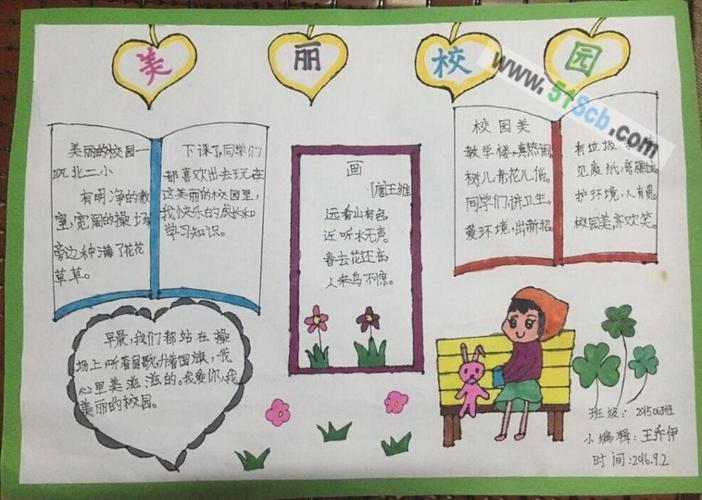 美丽校园
www.51Scb.com
美丽的校园一
北二小
有明净的教
室,宽阔的操场
旁边种满了花花
草草。
下课了,同学们
都喜欢出去玩,在
这美丽的校园里,
我们快乐的成长和
学习知识。
画
[唐]王维
远看山有色,
近听水无声。
春去花还在,
人来鸟不惊。
校园美
教学楼,真热闹。
树儿青花儿俏。
同学们,讲卫生。
爱环境,出新招。
有垃圾
见废纸,弯腰捡。
护环境,人有责,
校园美,齐欢笑。
早晨,我们都站在操
场上,听着国歌,升着国旗,我
心里美滋滋的。我爱你,我
美丽的校园。
班级:201506班
小编辑:王乔伊
时间:2016.9.2